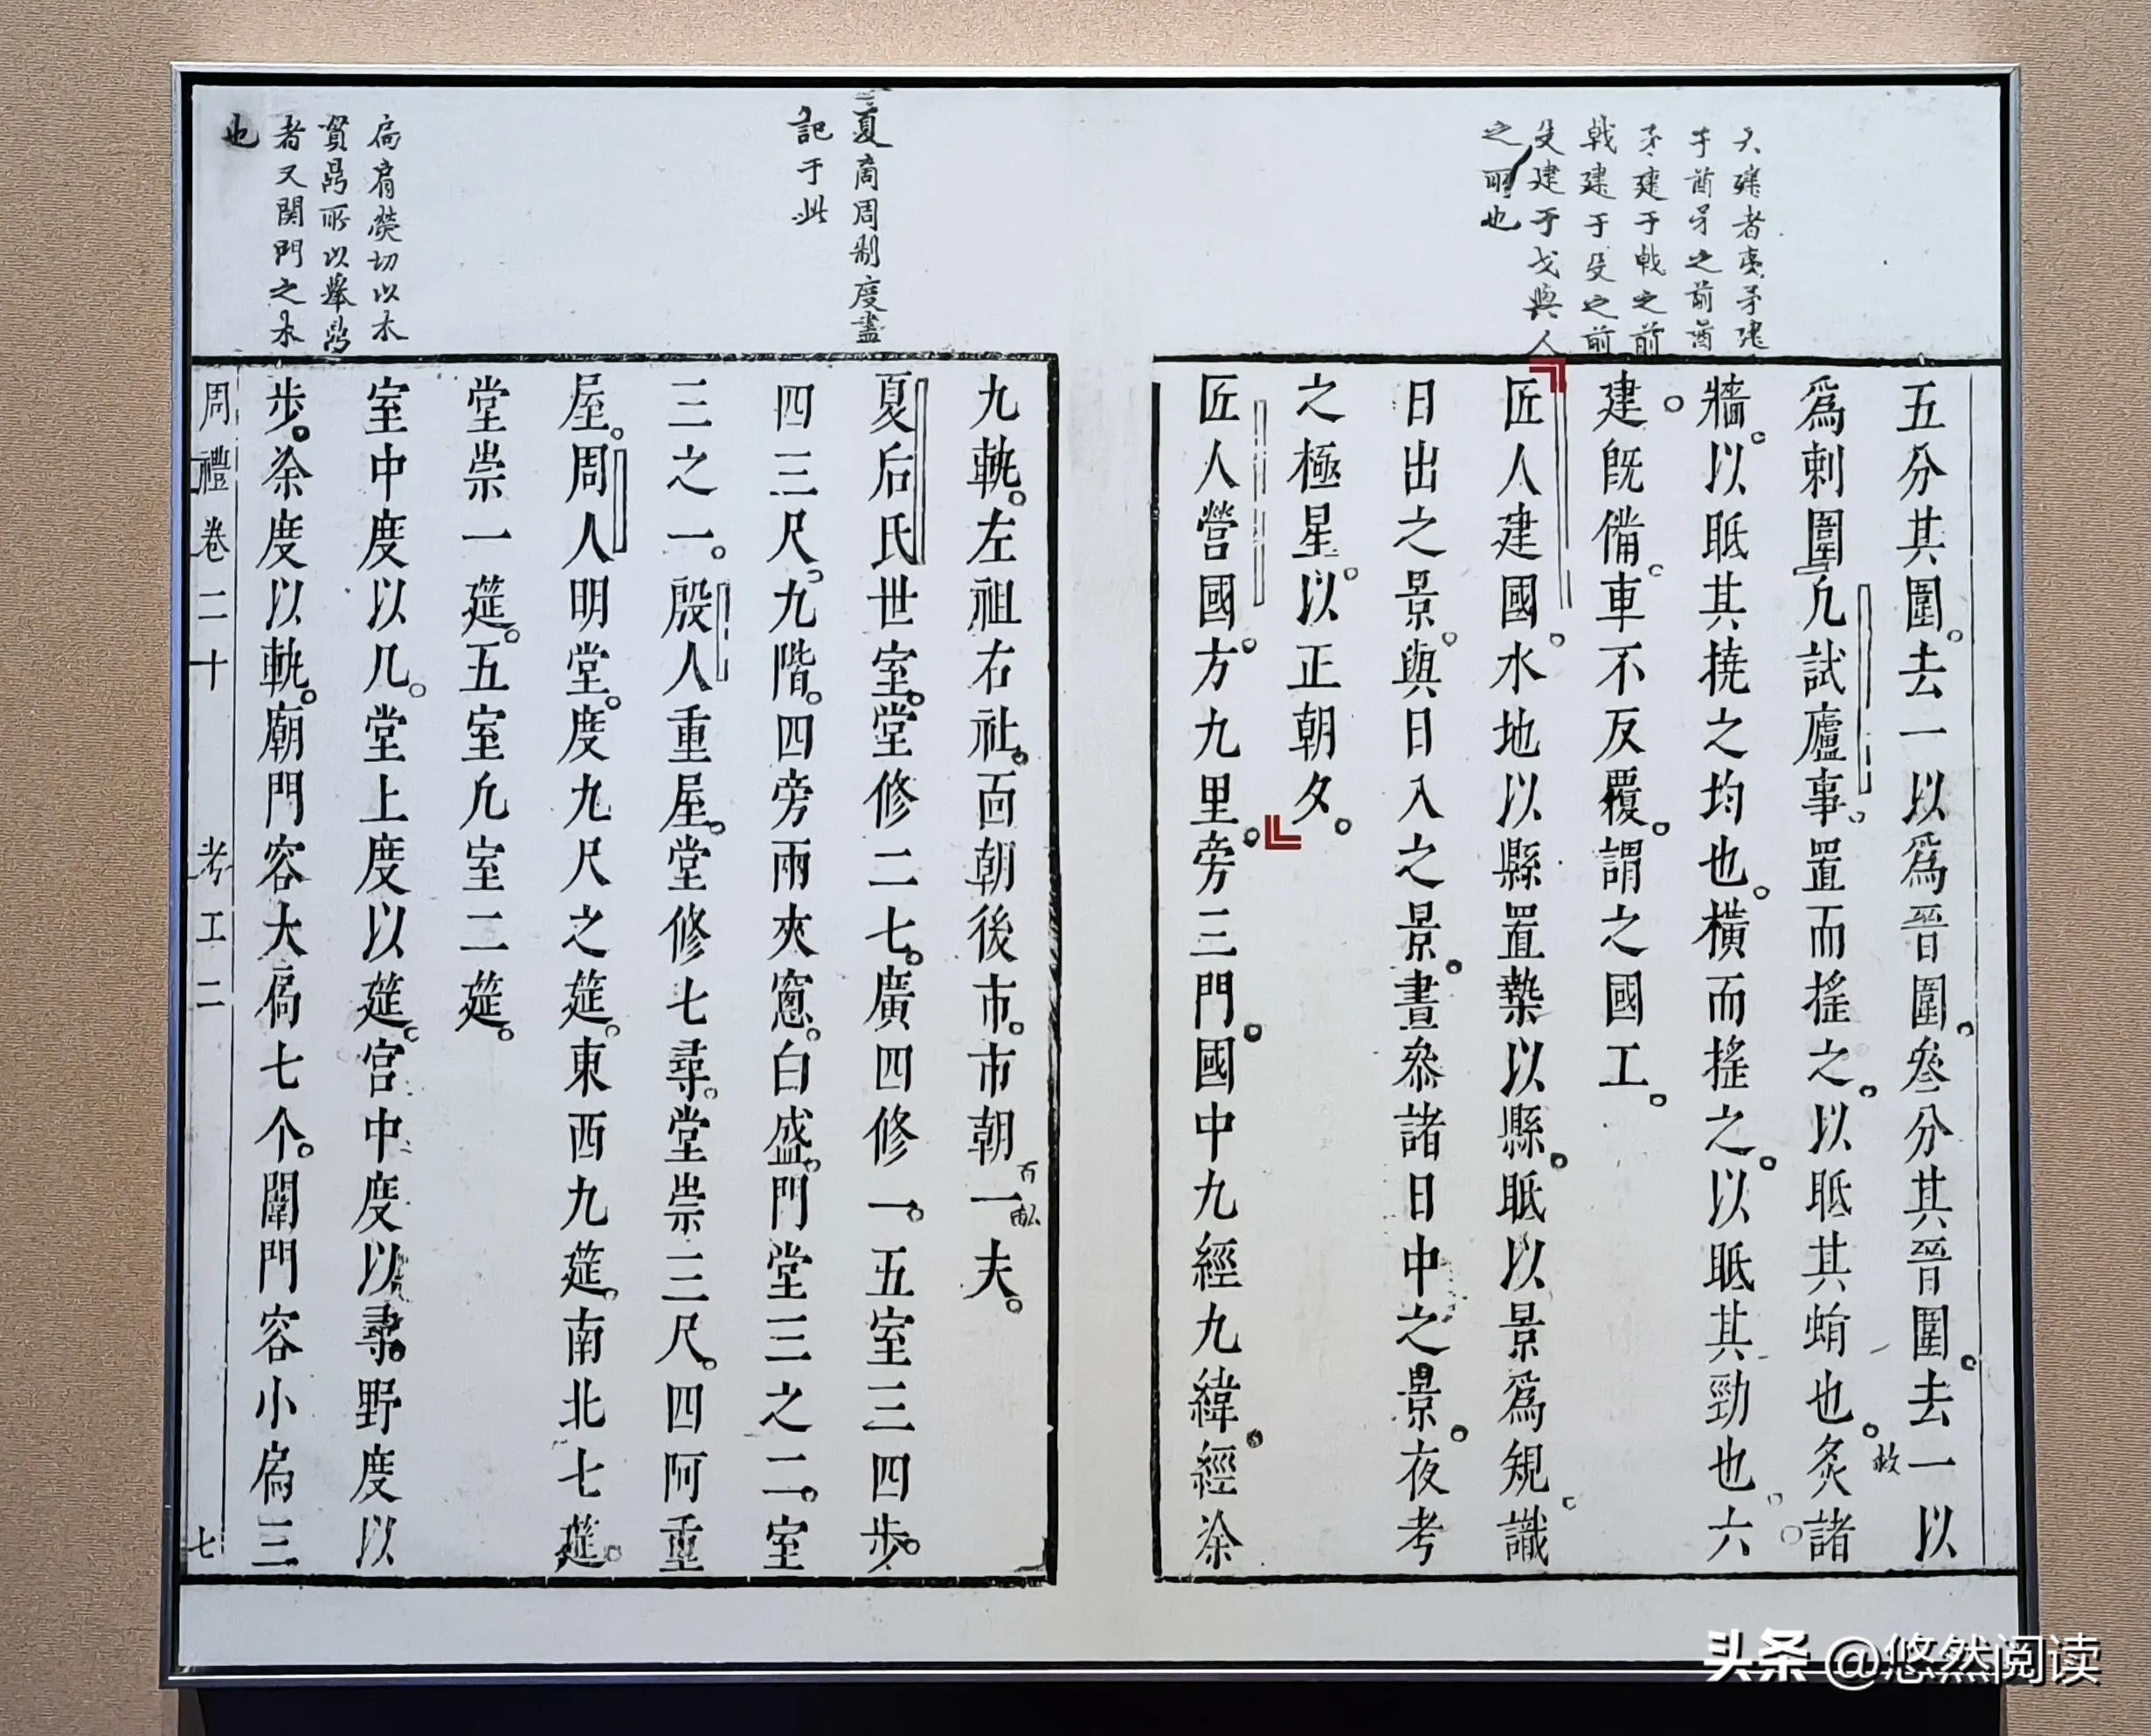 六建者夷矛建
于酋矛之前酋
矛建于戟之前
戟建于殳之前
殳建于戈與人
之間也
五分其圍。去一以爲晉圍。參分其晉圍。去一以
爲刺圍凡試廬事。置而搖之。以眡其蜎也。炙諸
灸
牆。以眡其撓之均也。橫而搖之。以眡其勁也。六
建。既備。車不反覆。謂之國工。
匠人建國。水地以縣置槷以縣。眡以景爲規。識
日出之景。與日入之景。晝參諸日中之景。夜考
之極星。以正朝夕。
匠人營國。方九里。旁三門。國中九經九緯。經涂
夏商周制度盡
記于此
九軌。左祖右社。面朝後市。市朝一夫。
百畝
夏后氏世室。堂修二七。廣四修一。五室三四步。
四三尺。九階。四旁兩夾窻。白盛。門堂三之二。室
三之一。殷人重屋。堂修七尋。堂崇三尺。四阿重
屋。周人明堂。度九尺之筵。東西九筵。南北七筵。
堂崇一筵。五室凡室二筵。
扃肩熒切以木
貫鼎所以舉鼎
者又関門之木
也
室中度以几。堂上度以筵。宮中度以尋。野度以
步。涂度以軌。廟門容大扃七个。闈門容小扃三
周禮卷二十 考工二 七
头条 @悠然阅读